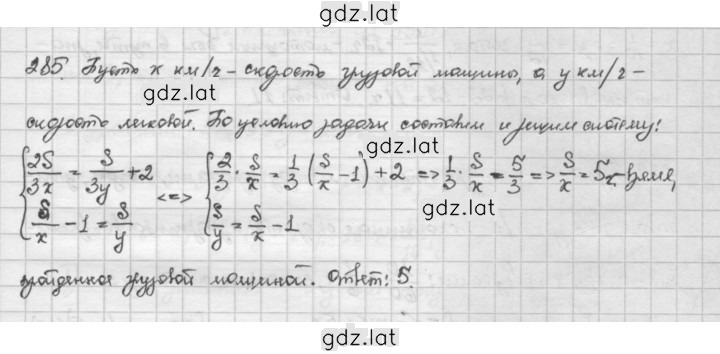 gdz.lat
285. Пусть x км/ч – скорость грузовой машины, а y км/ч –
gdz.lat
скорость легковой. По условию задачи составим и решим систему:
gdz.lat
{ 2S/3x = S/3y + 2 <=> { 2/3 · S/x = 1/3 (S/x – 1) + 2 => 1/3 · S/x = 5/3 => S/x = 5ч – время,
{ S/x – 1 = S/y { S/y = S/x – 1
gdz.lat
пройденное грузовой машиной. Ответ: 5.
gdz.lat